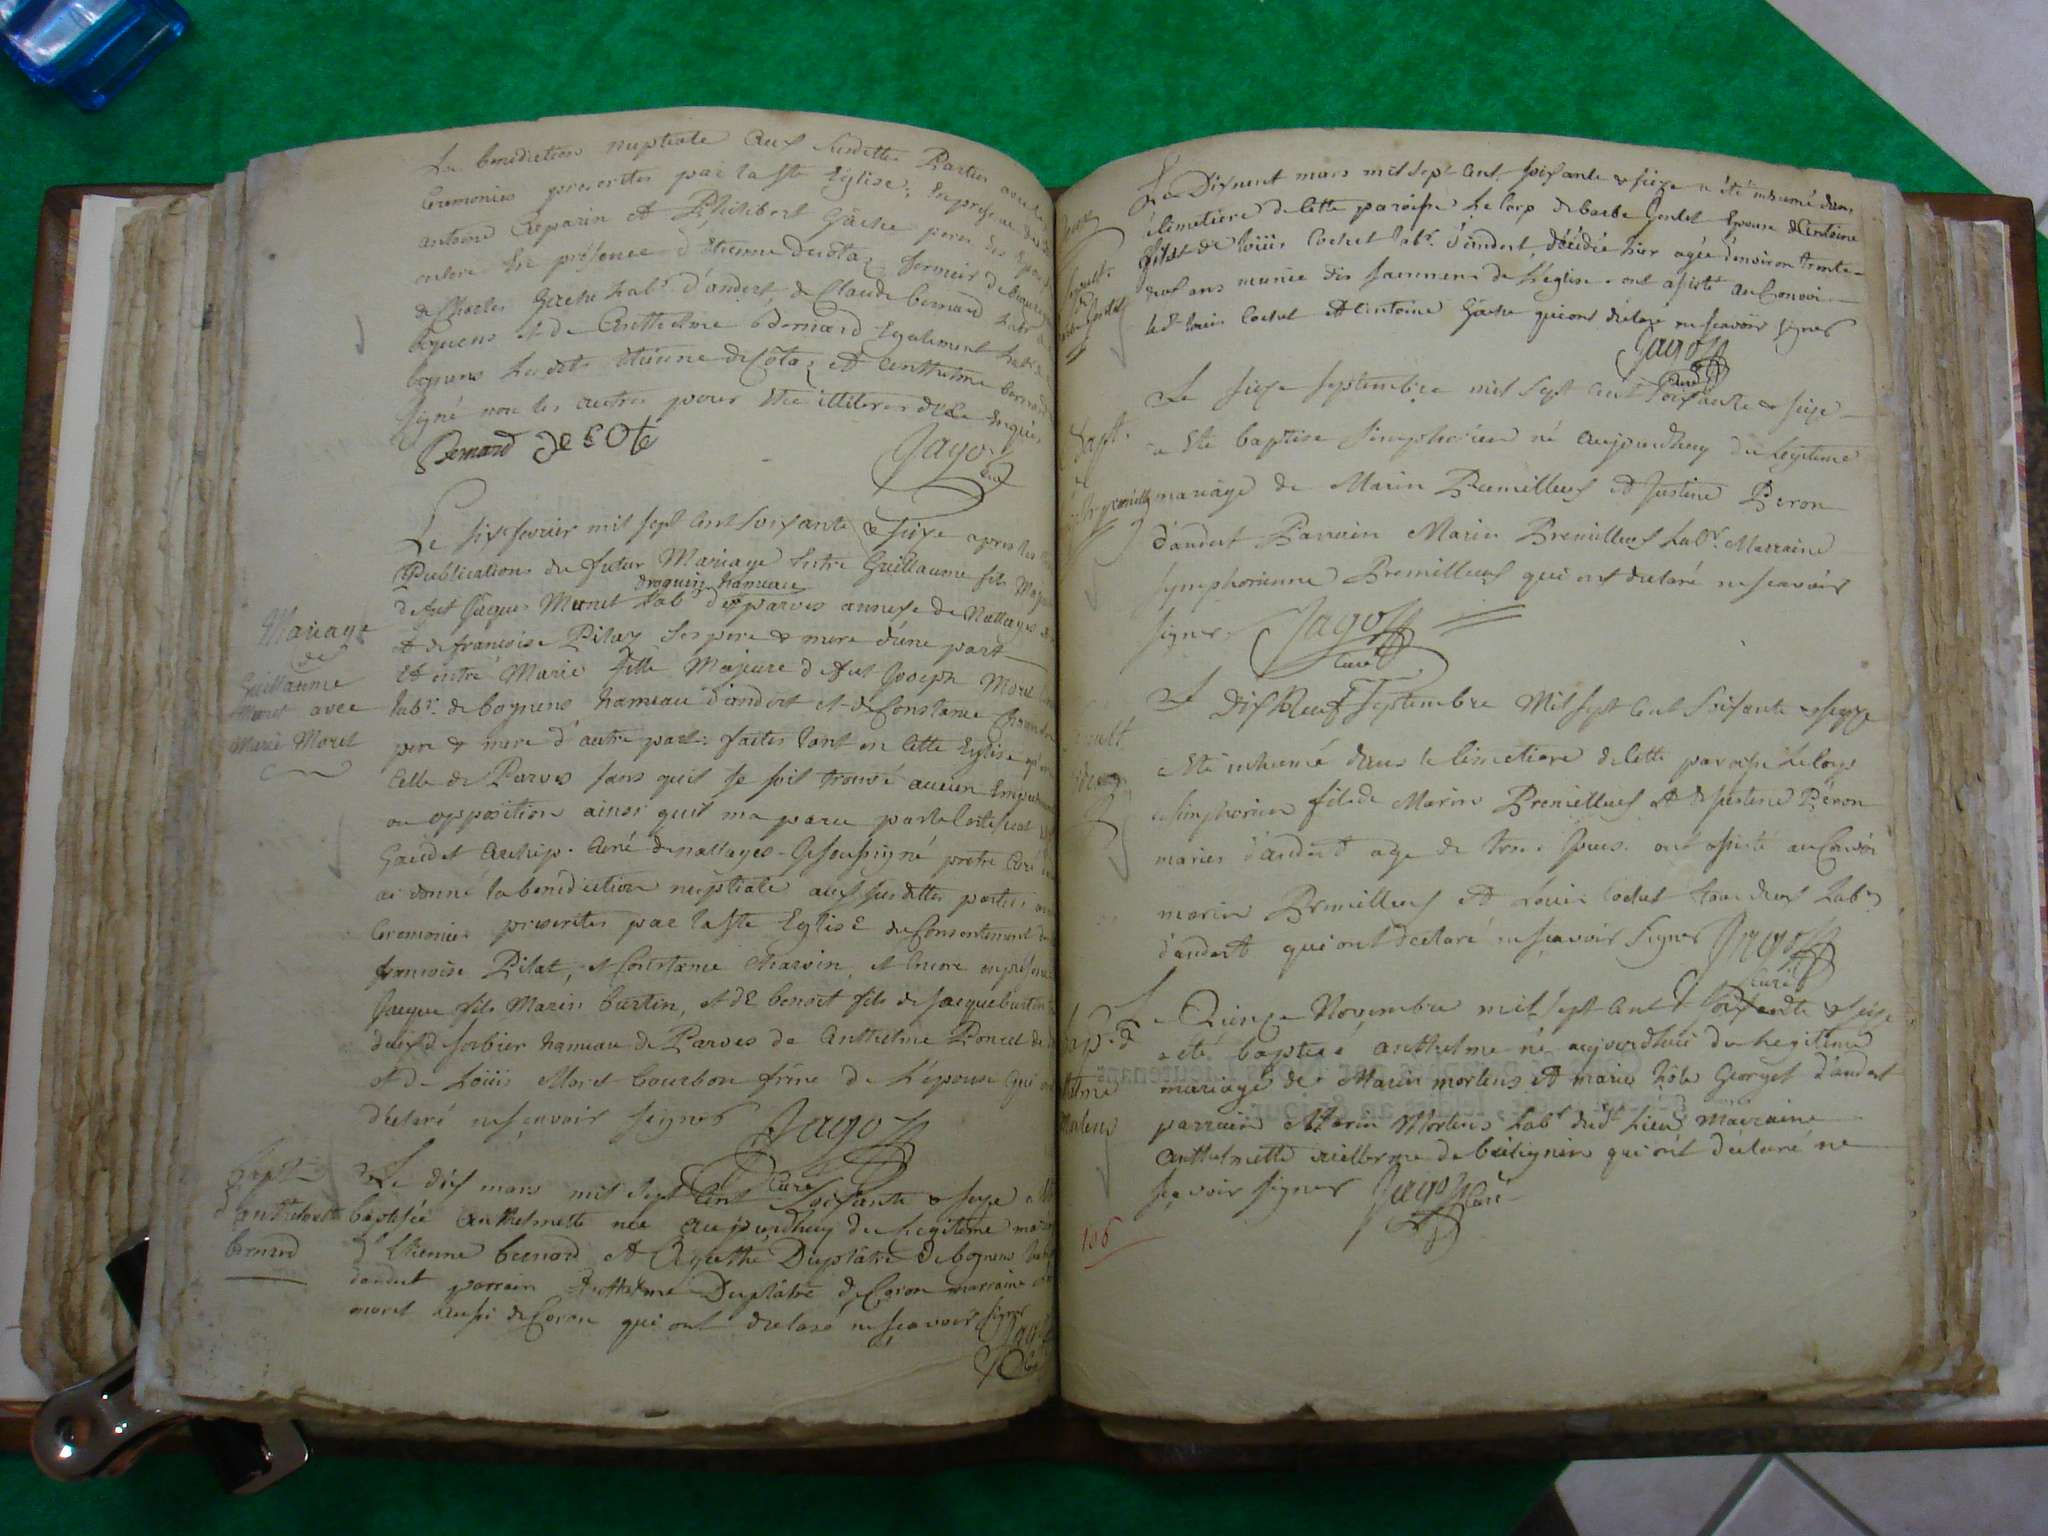 La benediction nuptiale aux susdittes Parties avec les
Ceremonies prescrites par la Ste Eglise; En presence des
antoine Reparin et Philibert Gâche peres des Epoux
en présence d'étienne decota fermier de
de Charles Gache lab.r d'andert de Claude bernard lab.r
bognens et de Anthelme Bernard Egalement lab.r
bognens Les dts étienne de Cota et anthelme bernard
signé non les autres pour être illiterés de ce Enquis
Bernard De COte
Jagot
curé
Le six fevrier mil sept cent soixante & seize apres les
Publications du futur Mariage Entre Guillaume fils Majeur
droguin hameau
defunt Jaques Moret lab.r de parves annexe de Nattages
et de francoise Pilaz ses pere & mere d'une part
Et entre Marie fille Majeure defunt Joseph Moret
lab.r de bognens hameau d'andert et de Constance
pere & mere d'autre part: faites tant en cette Eglise qu'en
Celle de Parves sans quil se soit trouvé aucun Empechement
ou opposition ainsi quil ma paru par le Certificat
Gaudet archip. Curé de nattages. Je soussigné pretre Curé
ai donné la bénédiction nuptiale aux susdittes parties
Ceremonies prescrites par la Ste Eglise du Consentement de
francoise Pilat, et Constance Charvin, et Encore en présence
Jacque fils Marin burtin, et de benoit fils de Jacque burtin
de sorbier hameau de Parves de Anthelme Poncet
et de Loüis Moret bourbon frere de L'épouse qui ont
déclaré ne sçavoir signer Jagot
Curé
Mariage
de
Guillaume
Moret avec
Marie Moret
Le dix mars mil sept Cent soixante & seize a été
baptisée Anthelmette née aujourdhuy du Legitime mariage
d'Etienne bernard et Agathe Duplâtre de bognens
dandert parrain Anthelme Duplâtre de Coron marraine
moret aussi de Coron qui ont declaré ne sçavoir signer
Jagot
Curé
Bapt.
d'anthelmette
bernard
Le Dixneuf mars mil sept Cent soixante & seize a été inhumé dans
le Cimetiere de Cette paroisse Le Corp de barbe Goulet Epouse d'Antoine
fils de Loüis Cochet lab.r d'andert, décédée hier agée d'environ trente
ans munie des sacrements de L'église. ont assisté au Convoi
le dt Louis Cochet et Antoine Gâche qui ont déclaré ne sçavoir signer
Jagot
Curé
Le seize septembre mil sept cent soixante & seize
a Eté baptise Simphorien né aujourdhuy du Legitime
mariage de Marin Premilleux et Justine Peron
d'andert Parrain Marin Premilleux Lab.r Marraine
symphorienne Premilleux qui ont declaré ne scavoir
signer Jagot
Curé
Bapt.
Le Dix Neuf Septembre Mil sept Cent soixante & seize
a Eté inhumé dans le Cimetiere de Cette paroisse Le Corps
de simphorien fils de Marin Premilleux et de Justine Péron
mariés d'andert agé de trois Jours. ont assisté au Convoi
marin Premilleux et Loüis Cochet tous deux Lab.rs
d'andert qui ont declaré ne sçavoir signer Jagot
Curé
Le Quinze Novembre mil sept Cent Soixante & seize
a été baptisé anthelme né aujourdhui du Legitime
mariage de Marin mortens et marie Georget d'andert
parrain Marin Mortens Lab.r dudt Lieu Marraine
Anthelmette de billignin qui ont déclaré ne
sçavoir signer Jagot Curé
Bap. d
Mortens
106